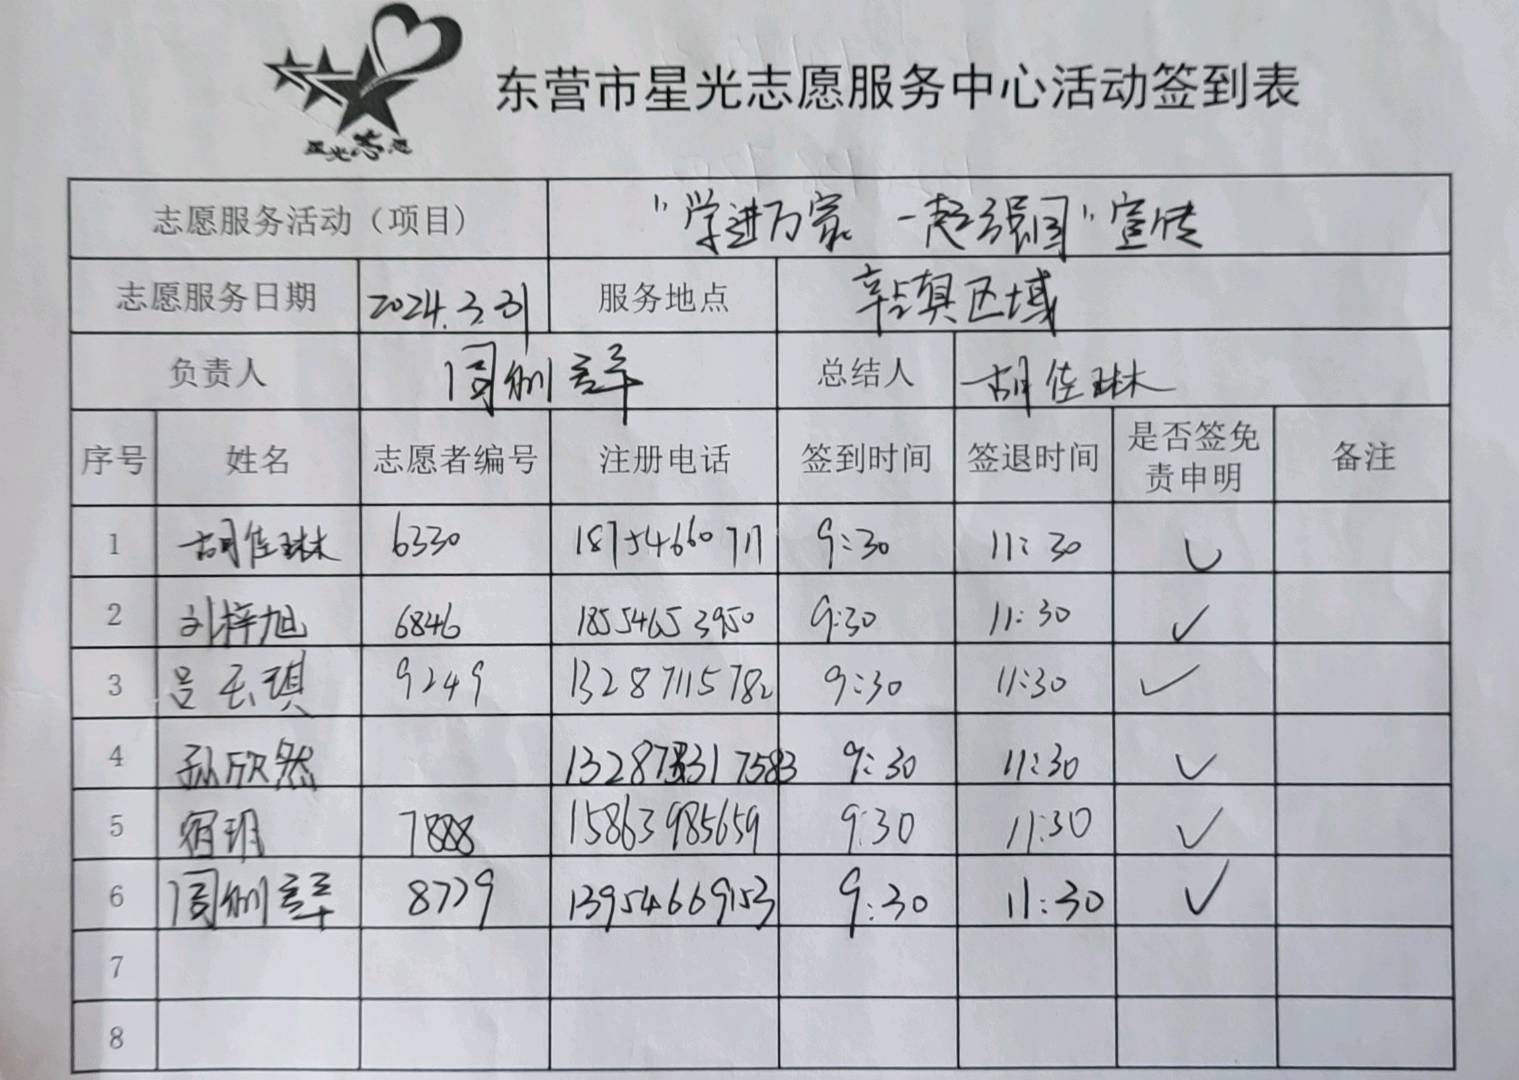 星光志愿
东营市星光志愿服务中心活动签到表
志愿服务活动（项目） “学进万家 一起强国”宣传
志愿服务日期 2024.3.31 服务地点 辛店镇区域
负责人 总结人 胡佳琳
序号 姓名 志愿者编号 注册电话 签到时间 签退时间 是否签免责申明 备注
1 胡佳琳 6330 18754660711 9:30 11:30 ✓
2 刘梓旭 6846 18554653950 9:30 11:30 ✓
3 吕云琪 9249 13287115782 9:30 11:30 ✓
4 孙欣然 9:30 11:30 ✓
5 宿玥 7888 15863985659 9:30 11:30 ✓
6 8729 13954669153 9:30 11:30 ✓
7
8